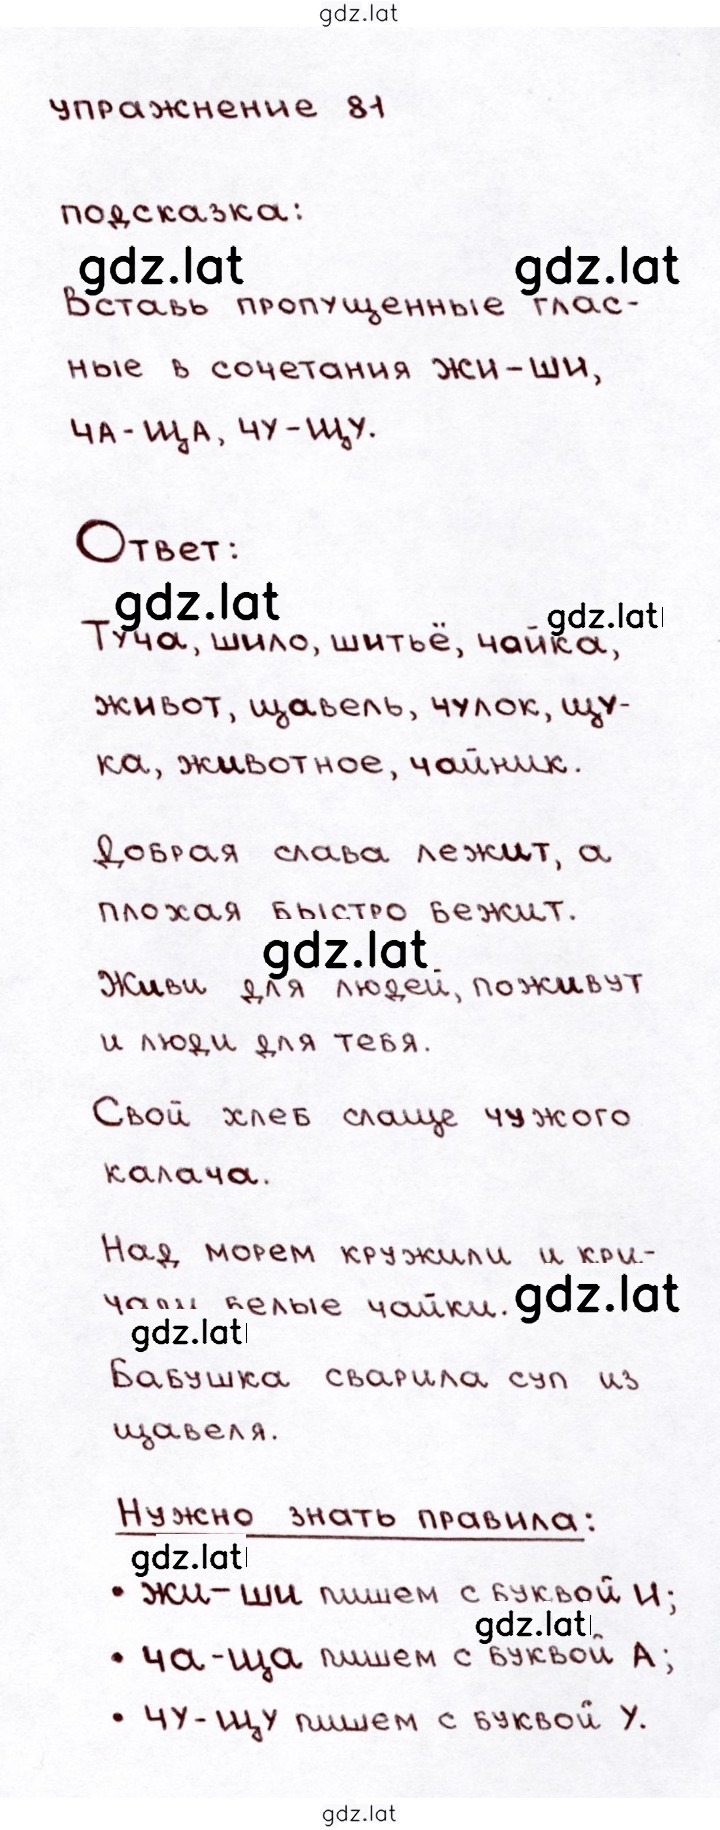 gdz.lat
упражнение 81
подсказка:
gdz.lat gdz.lat
Вставь пропущенные глас-
ные в сочетания жи-ши,
ЧА-ЩА, ЧУ-ЩУ.
Ответ:
gdz.lat gdz.lat
Туча, шило, шитьё, чайка,
живот, щавель, чулок, щу-
ка, животное, чайник.
Добрая слава лежит, а
плохая быстро бежит.
gdz.lat
Живи для людей, поживут
и люди для тебя.
Свой хлеб слаще чужого
калача.
Над морем кружили и кри-
чали белые чайки. gdz.lat
gdz.lat
Бабушка сварила суп из
щавеля.
Нужно знать правила:
gdz.lat
• жи-ши пишем с буквой И;
gdz.lat
• ча-ща пишем с буквой А;
• чу-щу пишем с буквой У.
gdz.lat